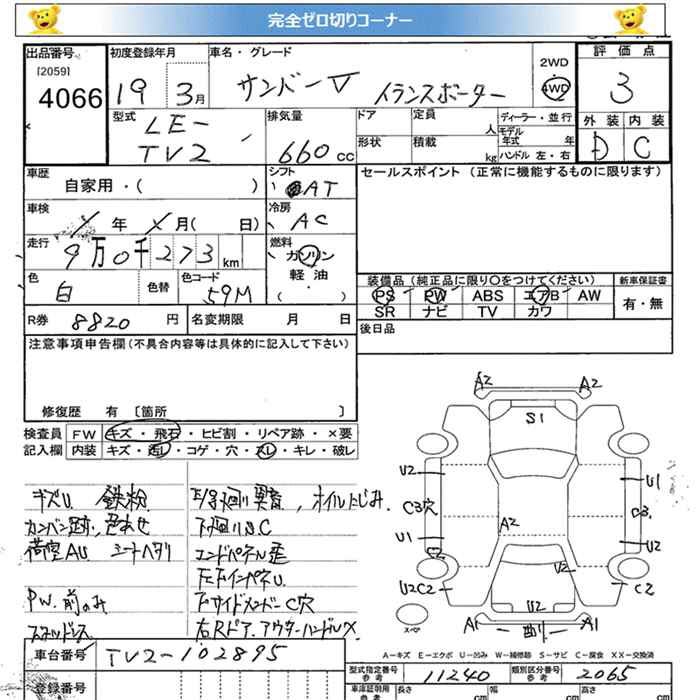 完全ゼロ切りコーナー
出品番号 初度登録年月 車名・グレード 2WD 評価点
[2059] 4066 19 3月 サンバーV トランスポーター 4WD 3
型式 排気量 ドア 定員 人 ディーラー・並行 外装 内装
LE-TV2 660cc 形状 積載 kg モデル年式 年 ハンドル 左・右 D C
車歴 シフト セールスポイント (正常に機能するものに限ります)
自家用・( ) AT
車検 冷房
年 月( 日) AC
走行 燃料
9万0千273km ガソリン
軽油
色 色替 色コード ( ・ ) 装備品(純正品に限り○をつけてください) 新車保証書
白 59M PS PW ABS エアB AW 有・無
SR ナビ TV カワ
R券 8820円 名変期限 月 日 後日品
注意事項申告欄(不具合内容等は具体的に記入して下さい)
修復歴 有 [箇所 ]
検査員 FW キズ・飛石・ヒビ割・リペア跡・×要
記入欄 内装 キズ・汚レ・コゲ・穴・スレ・キレ・破レ
キズU 鉄粉 E/g廻り異音, オイルにじみ
カンバン跡, 色あせ 下廻りS.C
荷室AU シートヘタリ エンドパネル歪
左FインパネU.
PW.前のみ 下サイドメンバーC穴
右Rドア.アウターハンドルX
A2 A2
S1
U2 U1
C3穴 A2 C3.
U1 U2
C2 U2
U2C2 U2 C2
A1 A1
スペア
A-キズ E-エクボ U-凹み W-補修跡 S-サビ C-腐食 XX-交換済
車台番号 TV2-102895
型式指定番号 11240 類別区分番号 2065
登録番号 車庫証明用 長さ cm 幅 cm 高さ cm